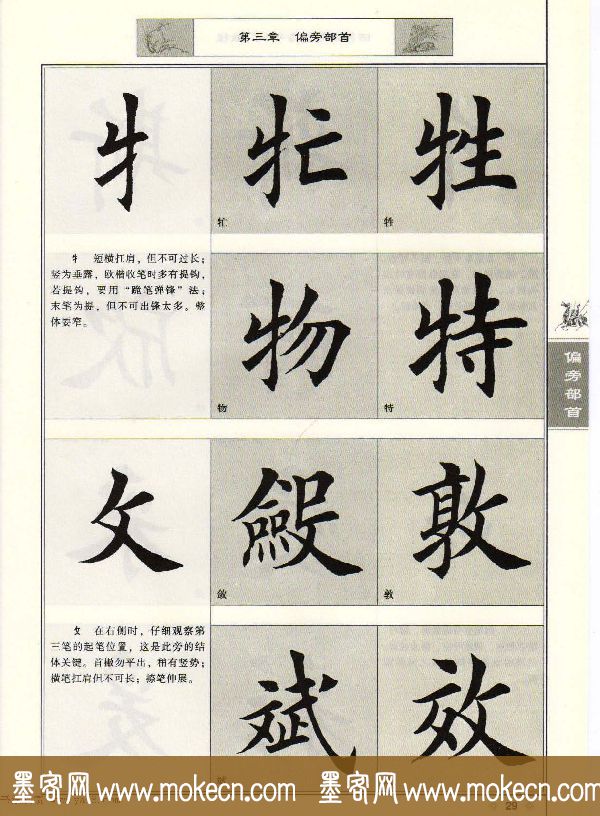 第三章 偏旁部首
牜 牤 牲
牤 牲
牜 短横扛肩，但不可过长；
竖为垂露，欧楷收笔时多有提钩，
若提钩，要用“跪笔弹锋”法；
末笔为提，但不可出锋太多。整
体要窄。
物 特
物 特
偏旁部首
攵 敛 敦
敛 敦
攵 在右侧时，仔细观察第
三笔的起笔位置，这是此旁的结
体关键。首撇勿平出，稍有竖势；
横笔扛肩但不可长；捺笔伸展。
斌 效
墨客网 www.mokecn.com 墨客网 www.mokecn.com
29